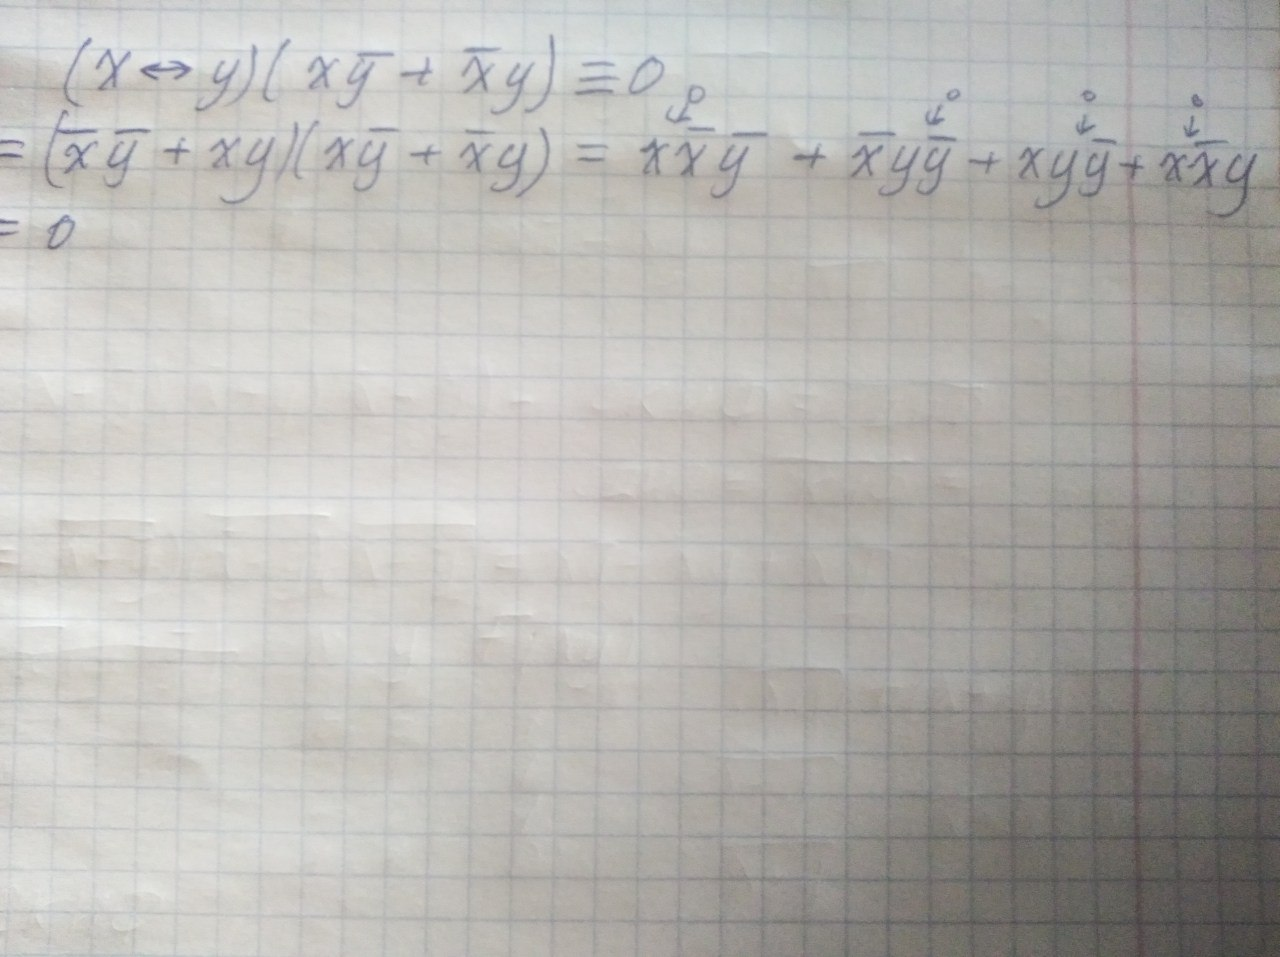 (x ↔ y)(xy̅ + x̅y) ≡ 0
= (x̅y̅ + xy)(xy̅ + x̅y) = xx̅y̅ + x̅yy̅ + xyy̅ + xx̅y
0 ↓ 0 ↓ 0 ↓ 0 ↓
= 0